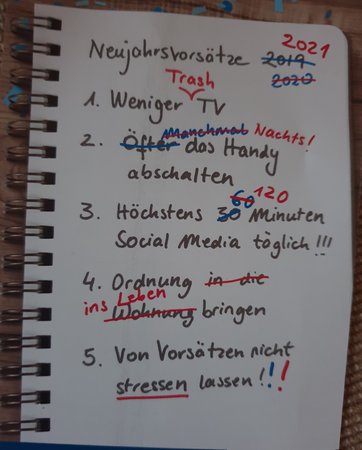 2021
Neujahrsvorsätze 2019
2020
Trash
1. Weniger TV
Manchmal Nachts!
2. Öfter das Handy
abschalten
60 120
3. Höchstens 30 Minuten
Social Media täglich!!!
4. Ordnung in die
ins Leben
Wohnung bringen
5. Von Vorsätzen nicht
stressen lassen!!!